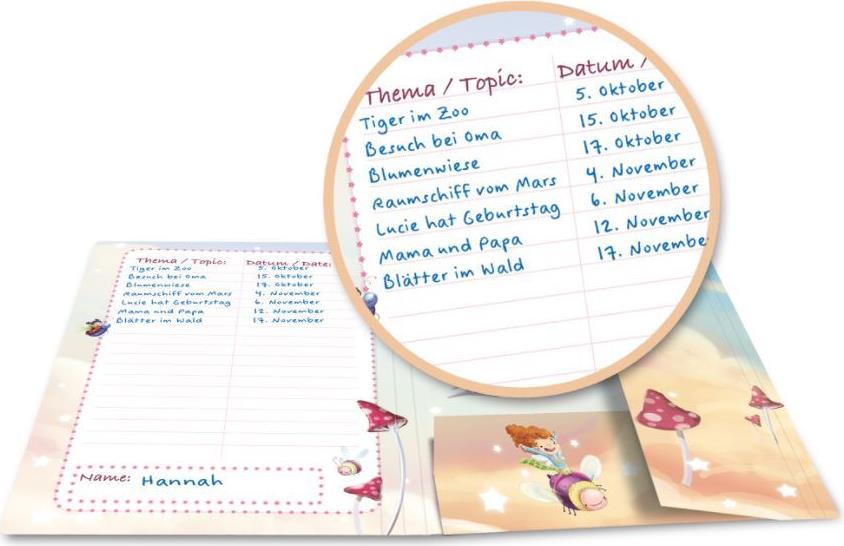 Thema / Topic: Datum /
Tiger im Zoo 5. Oktober
Besuch bei Oma 15. Oktober
Blumenwiese 17. Oktober
Raumschiff vom Mars 4. November
Lucie hat Geburtstag 6. November
Mama und Papa 12. November
Blätter im Wald 17. Novembe
Thema / Topic: Datum / Date:
Tiger im Zoo 5. Oktober
Besuch bei Oma 15. Oktober
Blumenwiese 17. Oktober
Raumschiff vom Mars 4. November
Lucie hat Geburtstag 6. November
Mama und Papa 12. November
Blätter im Wald 17. November
Name: Hannah